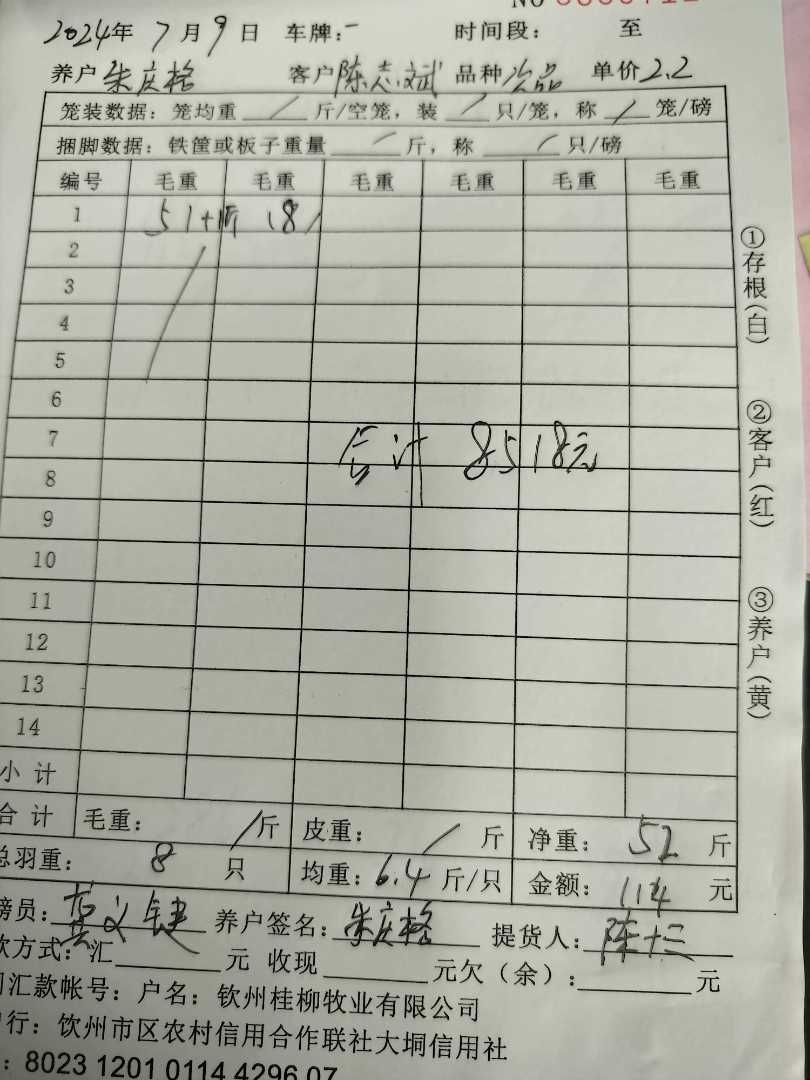 NO
2024年 7月 9日 车牌:- 时间段: 至
养户 朱庆格 客户 陈志斌 品种 次品 单价 2.2
笼装数据: 笼均重 / 斤/空笼, 装 / 只/笼, 称 / 笼/磅
捆脚数据: 铁筐或板子重量 / 斤, 称 / 只/磅
编号 毛重 毛重 毛重 毛重 毛重 毛重
1 51+
2
3
4
5
6
7 合计 8518元
8
9
10
11
12
13
14
小计
合计 毛重: / 斤 皮重: / 斤 净重: 52 斤
总羽重: 8 只 均重: 6.4 斤/只 金额: 114 元
磅员: 养户签名: 朱庆格 提货人: 陈十三
款方式: 汇 元 收现 元欠(余): 元
司汇款帐号: 户名: 钦州桂柳牧业有限公司
行: 钦州市区农村信用合作联社大垌信用社
: 8023 1201 0114 4296 07
①存根(白)
②客户(红)
③养户(黄)